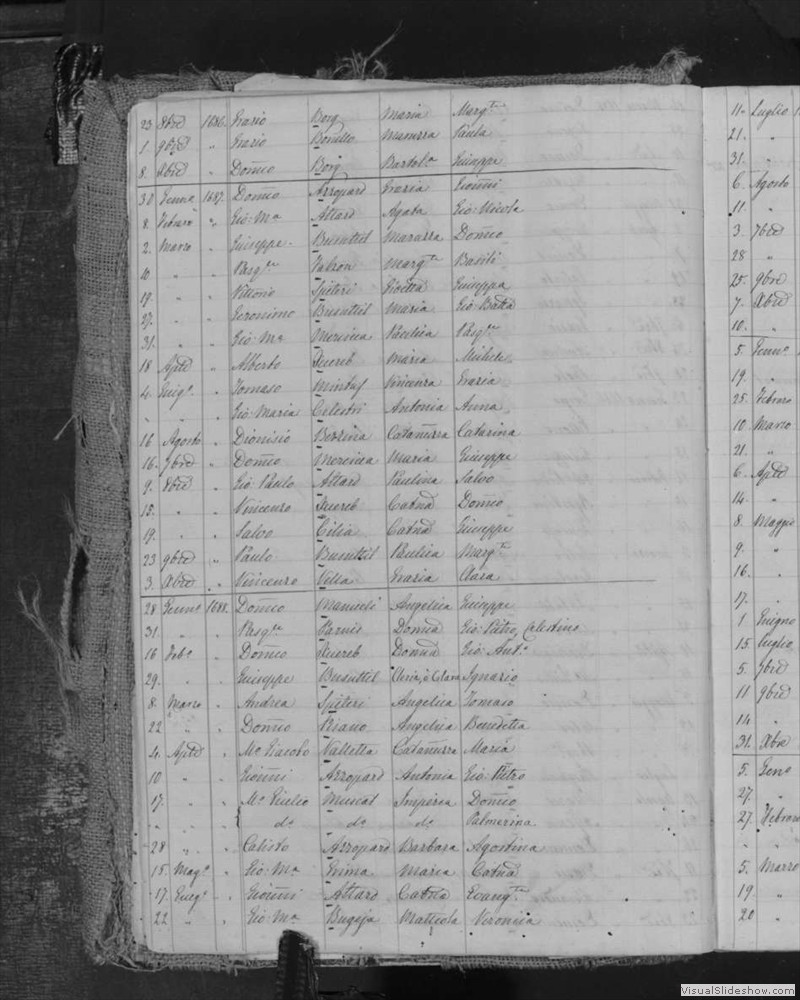 23 8bre 1686. Grazio Borg Maria Margta
1 9bre " Grazio Bonello Maruzza Paula
8 Xbre " Domco Borg Bartola Giuseppe
30 Genno 1687. Domco Azzopard Grazia Gionni
8 Febraro " Gio: Ma Attard Agata Gio: Nicola
2. Marzo " Giuseppe Busuttil Maruzza Domco
10 " " Pasqle Zabron Margta Basili
19 " " Vittorio Spiteri Gioetta Giuseppa
27. " " Geronimo Busuttil Maria Gio Batta
31. " " Gio: Ma Mercieca Paulica Pasqle
18 Aple " Alberto Xuereb Maria Michele
4. Giugo " Tomaso Mintuf Vincenza Grazia
" " " Gio Maria Celestri Antonia Anna
16 Agosto " Dionisio Bezzina Catanuzza Catarina
16. 7bre " Domco Mercieca Maria Giuseppe
9. 8bre " Gio: Paulo Attard Paulina Salvo
15. " " Vincenzo Xuereb Catna Domco
19. " " Salvo Cilia Catna Giuseppe
23 9bre " Paulo Busuttil Paulica Margta
3. Xbre " Vincenzo Vella Grazia Clara
28 Genno 1688. Domco Manueli Angelica Giuseppe
31 " " Pasqle Parnis Domca Gio: Pietro, Celestino
16 Febo " Domco Xuereb Domca Gio: Anto
29. " " Giuseppe Busuttil Clara Ignazio
8. Marzo " Andrea Spiteri Angelica Tomaso
22 " " Domco Piano Angelica Benedetta
4. Aple " Mo Giacobo Valletta Catanuzza Maria
10 " " Gionni Azzopard Antonia Gio: Pietro
17. " " Mo Giulio Muscat Imperia Domco
" " " do do do Palmerina
28 " " Calisto Azzopard Barbara Agostina
15. Mago " Gio: Ma Grima Maria Catna
17. Giugo " Gionni Attard Catna Evangta
22 " " Gio: Ma Bugeja Mattiola Veronica
11. Luglio
21. "
31. "
6. Agosto
11. "
3. 7bre
28 "
25. 9bre
7. Xbre
10. "
5. Genno
19. "
25. Febraro
10 Marzo
21. "
6. Aple
14. "
8. Maggio
9. "
16. "
17. "
1 Giugno
15. Luglio
5. 7bre
11 9bre
14 "
31. Xbre
5. Geno
27. "
27. Febraro
" "
5. Marzo
19 "
20 "
VisualSlideshow.com